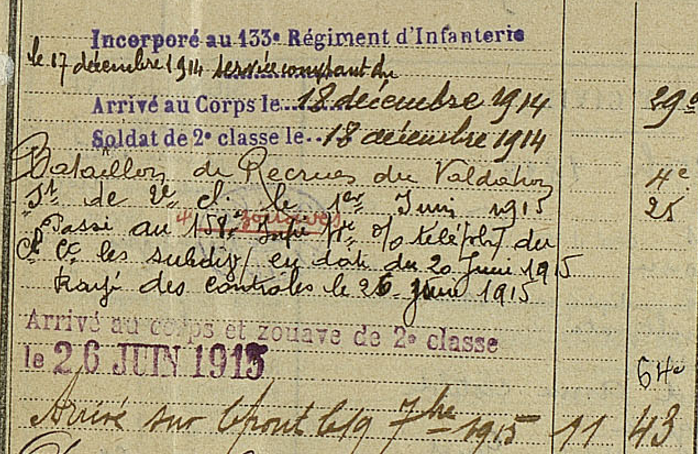 Incorporé au 133e Régiment d'Infanterie
le 17 décembre 1914 service comptant du
Arrivé au Corps le 18 décembre 1914 29e
Soldat de 2e classe le 18 décembre 1914
Bataillon de Recrues du Valdahon 4e
St de 2e cl. le 1er Juin 1915 25
4e zouaves
Passé au 158e Infie télépht du
les subdiv/ en date du 20 Juin 1915
Rayé des contrôles le 26 Juin 1915
Arrivé au corps et zouave de 2e classe
le 26 JUIN 1915 64e
Arrivé sur le front le 19 7bre 1915 11 43